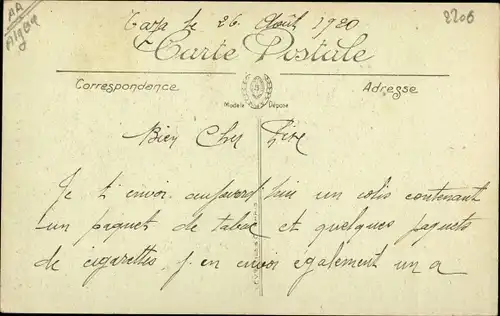 AA
Algérie
Taza le 26 Août 1920
2206
Carte Postale
Correspondance
Adresse
Modèle Déposé
Bien Cher Père
Je t'envoi aujourd'hui un colis contenant
un paquet de tabac et quelques paquets
de cigarettes j'en envoi également un a